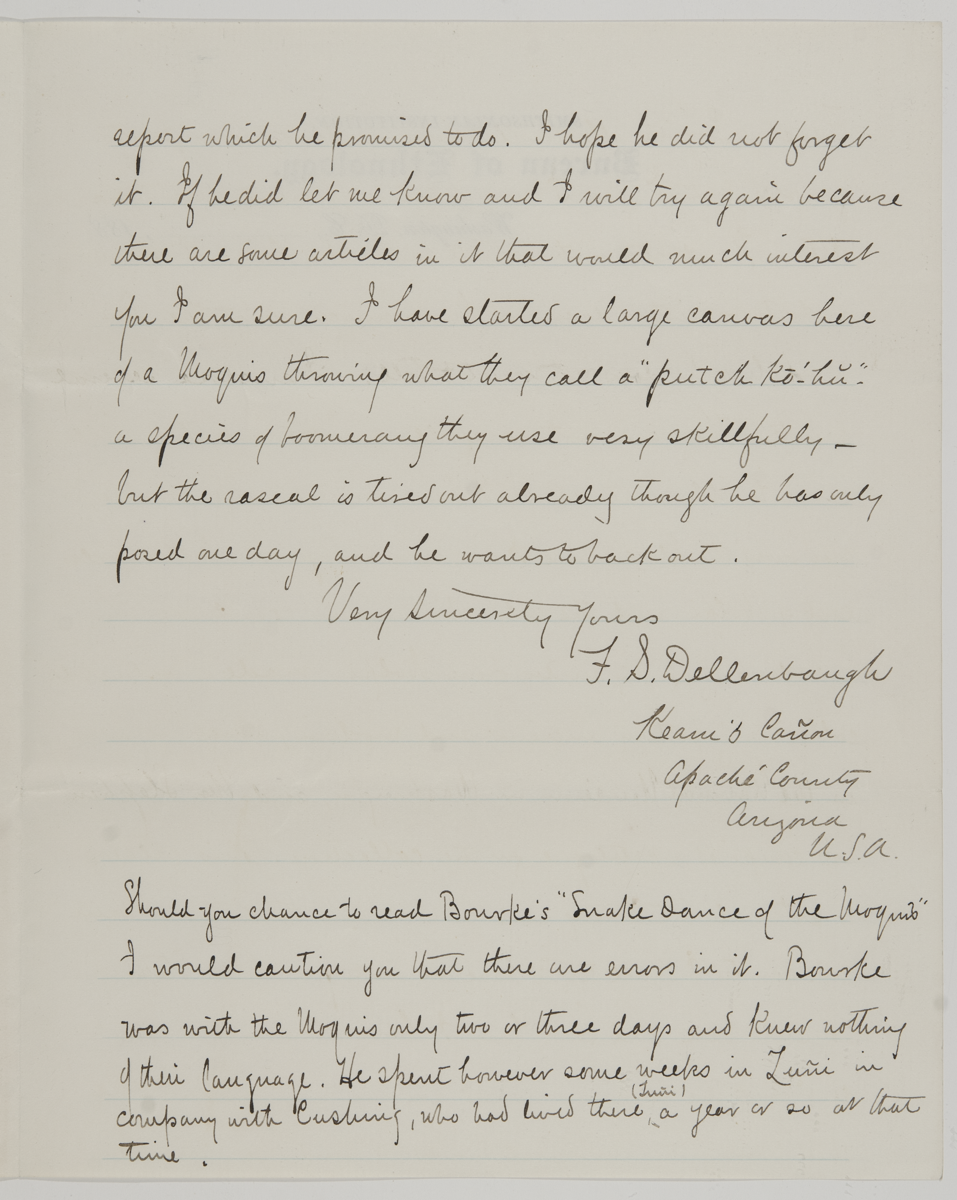 report which he promised to do. I hope he did not forget
it. If he did let me know and I will try again because
there are some articles in it that would much interest
you I am sure. I have started a large canvas here
of a Moquis throwing what they call a "putch kō'-hŭ"-
a species of boomerang they use very skillfully –
but the rascal is tired out already though he has only
posed one day, and he wants to back out.
Very Sincerely Yours
F. S. Dellenbaugh
Keam's Cañon
Apaché County
Arizona
U.S.A.
Should you chance to read Bourke's "Snake Dance of the Moquis"
I would caution you that there are errors in it. Bourke
was with the Moquis only two or three days and knew nothing
of their language. He spent however some weeks in Zuñi in
(Zuñi)
company with Cushing, who had lived there, a year or so at that
time.